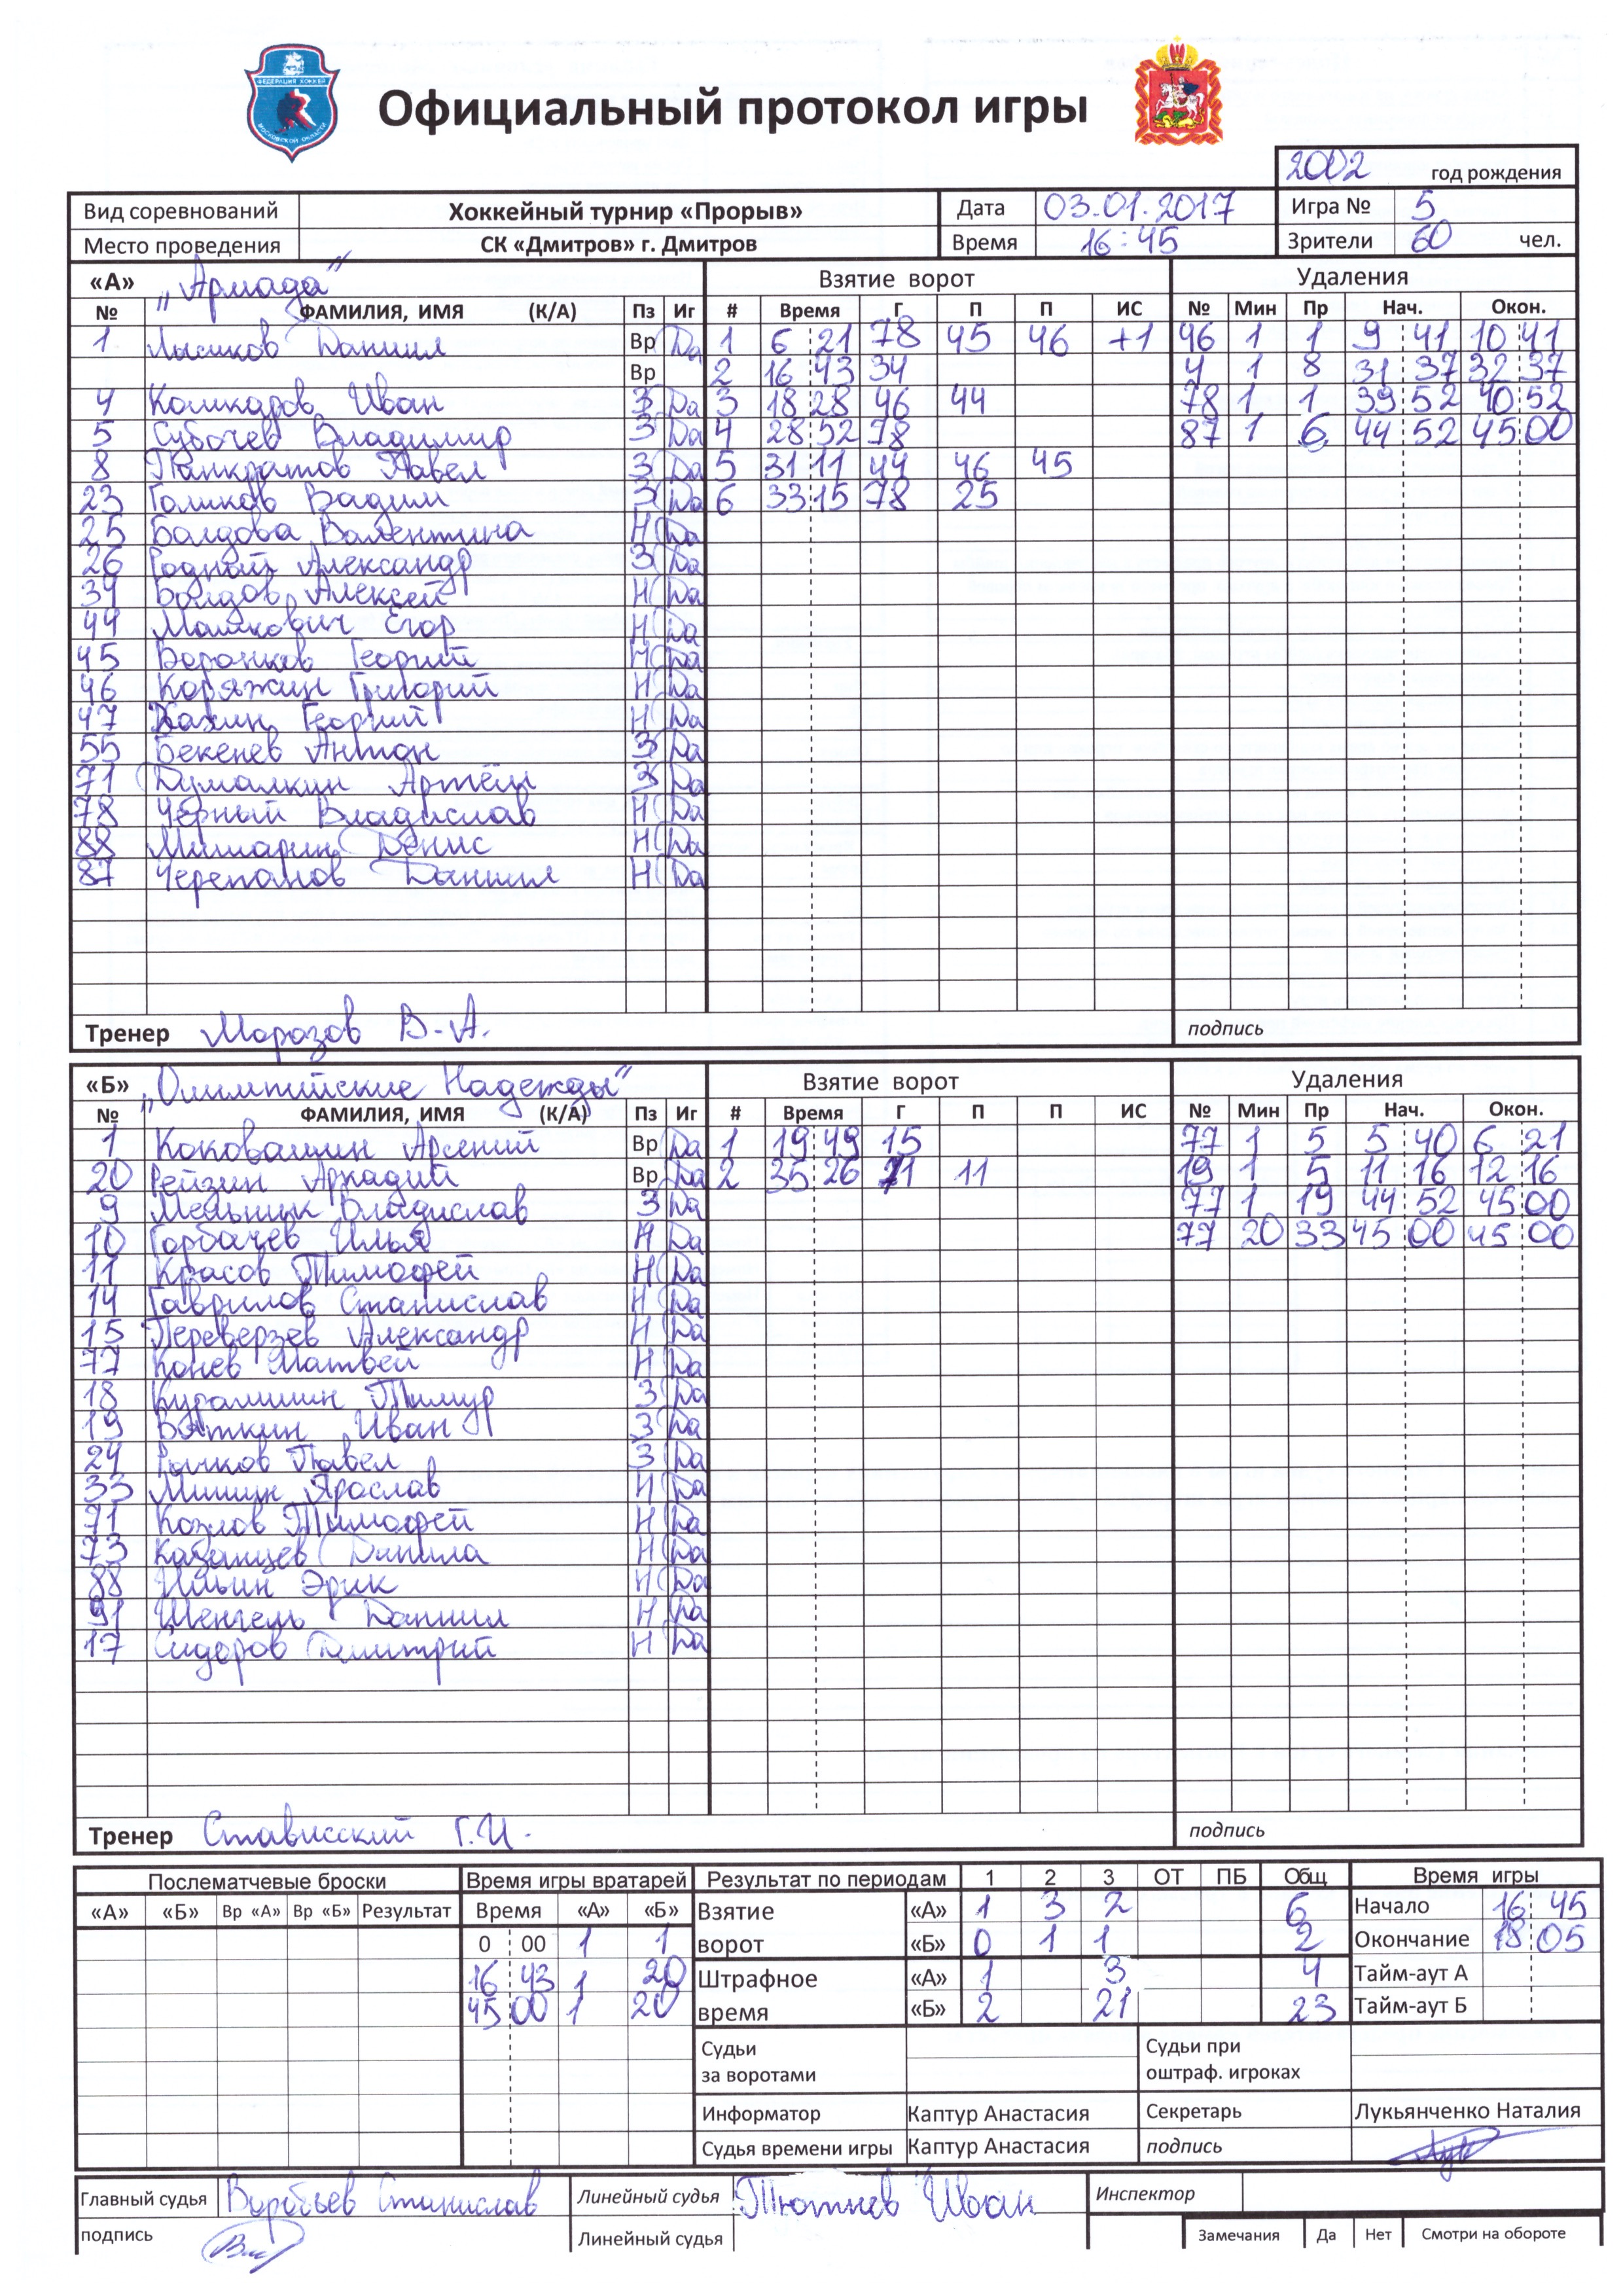 ФЕДЕРАЦИЯ ХОККЕЯ
МОСКОВСКОЙ ОБЛАСТИ
Официальный протокол игры
2002 год рождения
Вид соревнований Хоккейный турнир «Прорыв» Дата 03.01.2017 Игра № 5
Место проведения СК «Дмитров» г. Дмитров Время 16:45 Зрители 60 чел.
«А» „Армада" Взятие ворот Удаления
№ ФАМИЛИЯ, ИМЯ (К/А) Пз Иг # Время Г П П ИС № Мин Пр Нач. Окон.
1 Лысиков Даниил Вр Да 1 6 21 78 45 46 +1 96 1 1 9 41 10 41
Вр 2 16 43 34 4 1 8 31 37 32 37
4 Кашкаров Иван З Да 3 18 28 46 44 78 1 1 39 52 40 52
5 Субочев Владимир З Да 4 28 52 78 87 1 6 44 52 45 00
8 Панкратов Павел З Да 5 31 11 44 46 45
23 Голиков Вадим З Да 6 33 15 78 25
25 Болдова Валентина Н Да
26 Родной Александр З Да
34 Болдов Алексей Н Да
44 Машкович Егор Н Да
45 Воронков Георгий Н Да
46 Коряжкин Григорий Н Да
47 Георгий Н Да
55 Бекенев Антон З Да
71 Думалкин Артём З Да
78 Чёрный Владислав Н Да
88 Мишарин Денис Н Да
87 Черепанов Даниил Н Да
Тренер Морозов В.А. подпись
«Б» „Олимпийские Надежды" Взятие ворот Удаления
№ ФАМИЛИЯ, ИМЯ (К/А) Пз Иг # Время Г П П ИС № Мин Пр Нач. Окон.
1 Коковашин Арсений Вр Да 1 19 49 15 77 1 5 5 40 6 21
20 Рейзин Аркадий Вр Да 2 35 26 71 11 19 1 5 11 16 12 16
9 Мельник Владислав З Да 77 1 19 44 52 45 00
10 Горбачев Илья Н Да 77 20 33 45 00 45 00
11 Красов Тимофей Н Да
14 Гаврилов Станислав Н Да
15 Переверзев Александр Н Да
77 Конев Матвей Н Да
18 Курамшин Тимур З Да
19 Вяткин Иван З Да
24 Рычков Павел З Да
33 Мишин Ярослав Н Да
71 Козлов Тимофей Н Да
73 Казанцев Данила Н Да
88 Ильин Эрик Н Да
91 Шенгель Даниил Н Да
17 Сидоров Дмитрий Н Да
Тренер Стависский Г.И. подпись
Послематчевые броски Время игры вратарей Результат по периодам 1 2 3 ОТ ПБ Общ Время игры
«А» «Б» Вр «А» Вр «Б» Результат Время «А» «Б» Взятие «А» 1 3 2 6 Начало 16 45
0 00 1 1 ворот «Б» 0 1 1 2 Окончание 18 05
16 43 1 20 Штрафное «А» 1 3 4 Тайм-аут А
45 00 1 20 время «Б» 2 21 23 Тайм-аут Б
Судьи за воротами Судьи при оштраф. игроках
Информатор Каптур Анастасия Секретарь Лукьянченко Наталия
Судья времени игры Каптур Анастасия подпись
Главный судья Воробьев Станислав Линейный судья Тютнев Иван Инспектор
подпись Линейный судья Замечания Да Нет Смотри на обороте